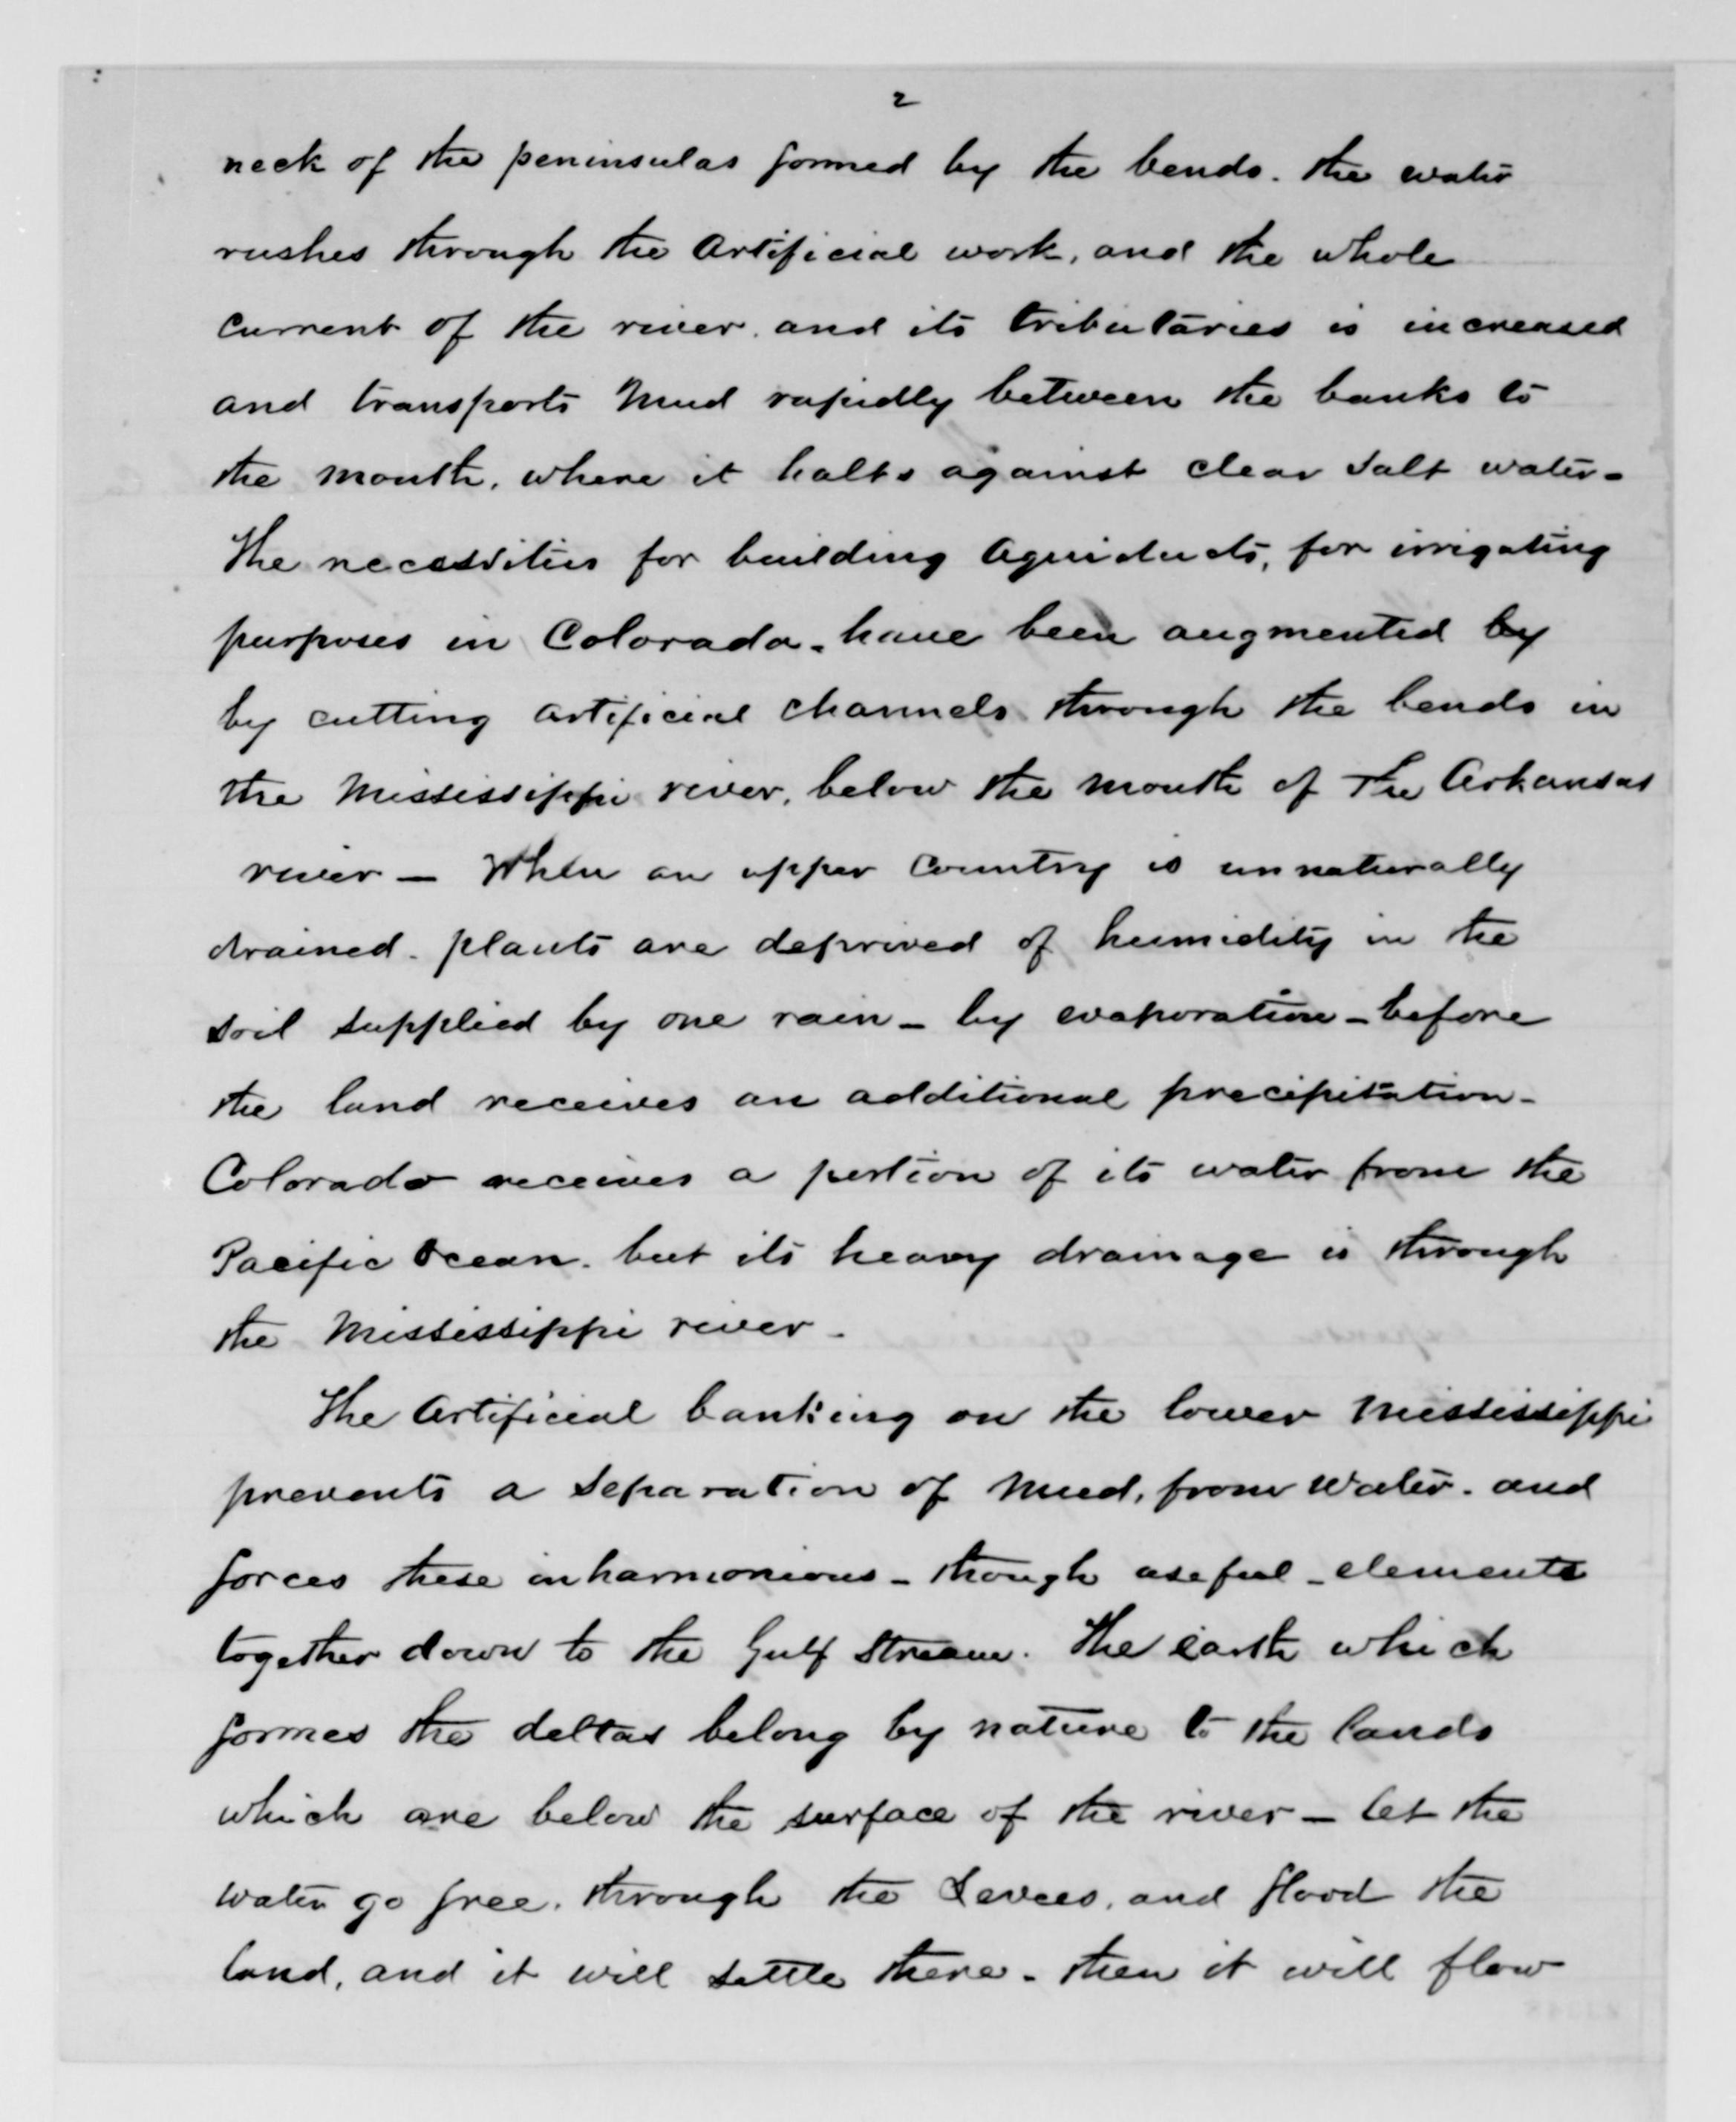 2
neck of the peninsulas formed by the bends. the water
rushes through the Artificial work, and the whole
current of the river. and its tributaries is increased
and transports Mud rapidly between the banks to
the mouth, where it halts against clear Salt water -
The necessities for building Aqueducts, for irrigating
purposes in Colorado. have been augmented by
by cutting artificial channels through the bends in
the Mississippi river, below the mouth of The Arkansas
river - When an upper country is unnaturally
drained. plants are deprived of humidity in the
soil supplied by one rain - by evaporation - before
the land receives an additional precipitation -
Colorado receives a portion of its water from the
Pacific Ocean. but its heavy drainage is through
the Mississippi river -
The Artificial banking on the lower Mississippi
prevents a separation of Mud, from water. and
forces these inharmonious - though useful - elements
together down to the Gulf Stream. The earth which
formes the deltas belong by nature to the lands
which are below the surface of the river - let the
water go free. through the Levees, and flood the
land, and it will settle there - then it will flow